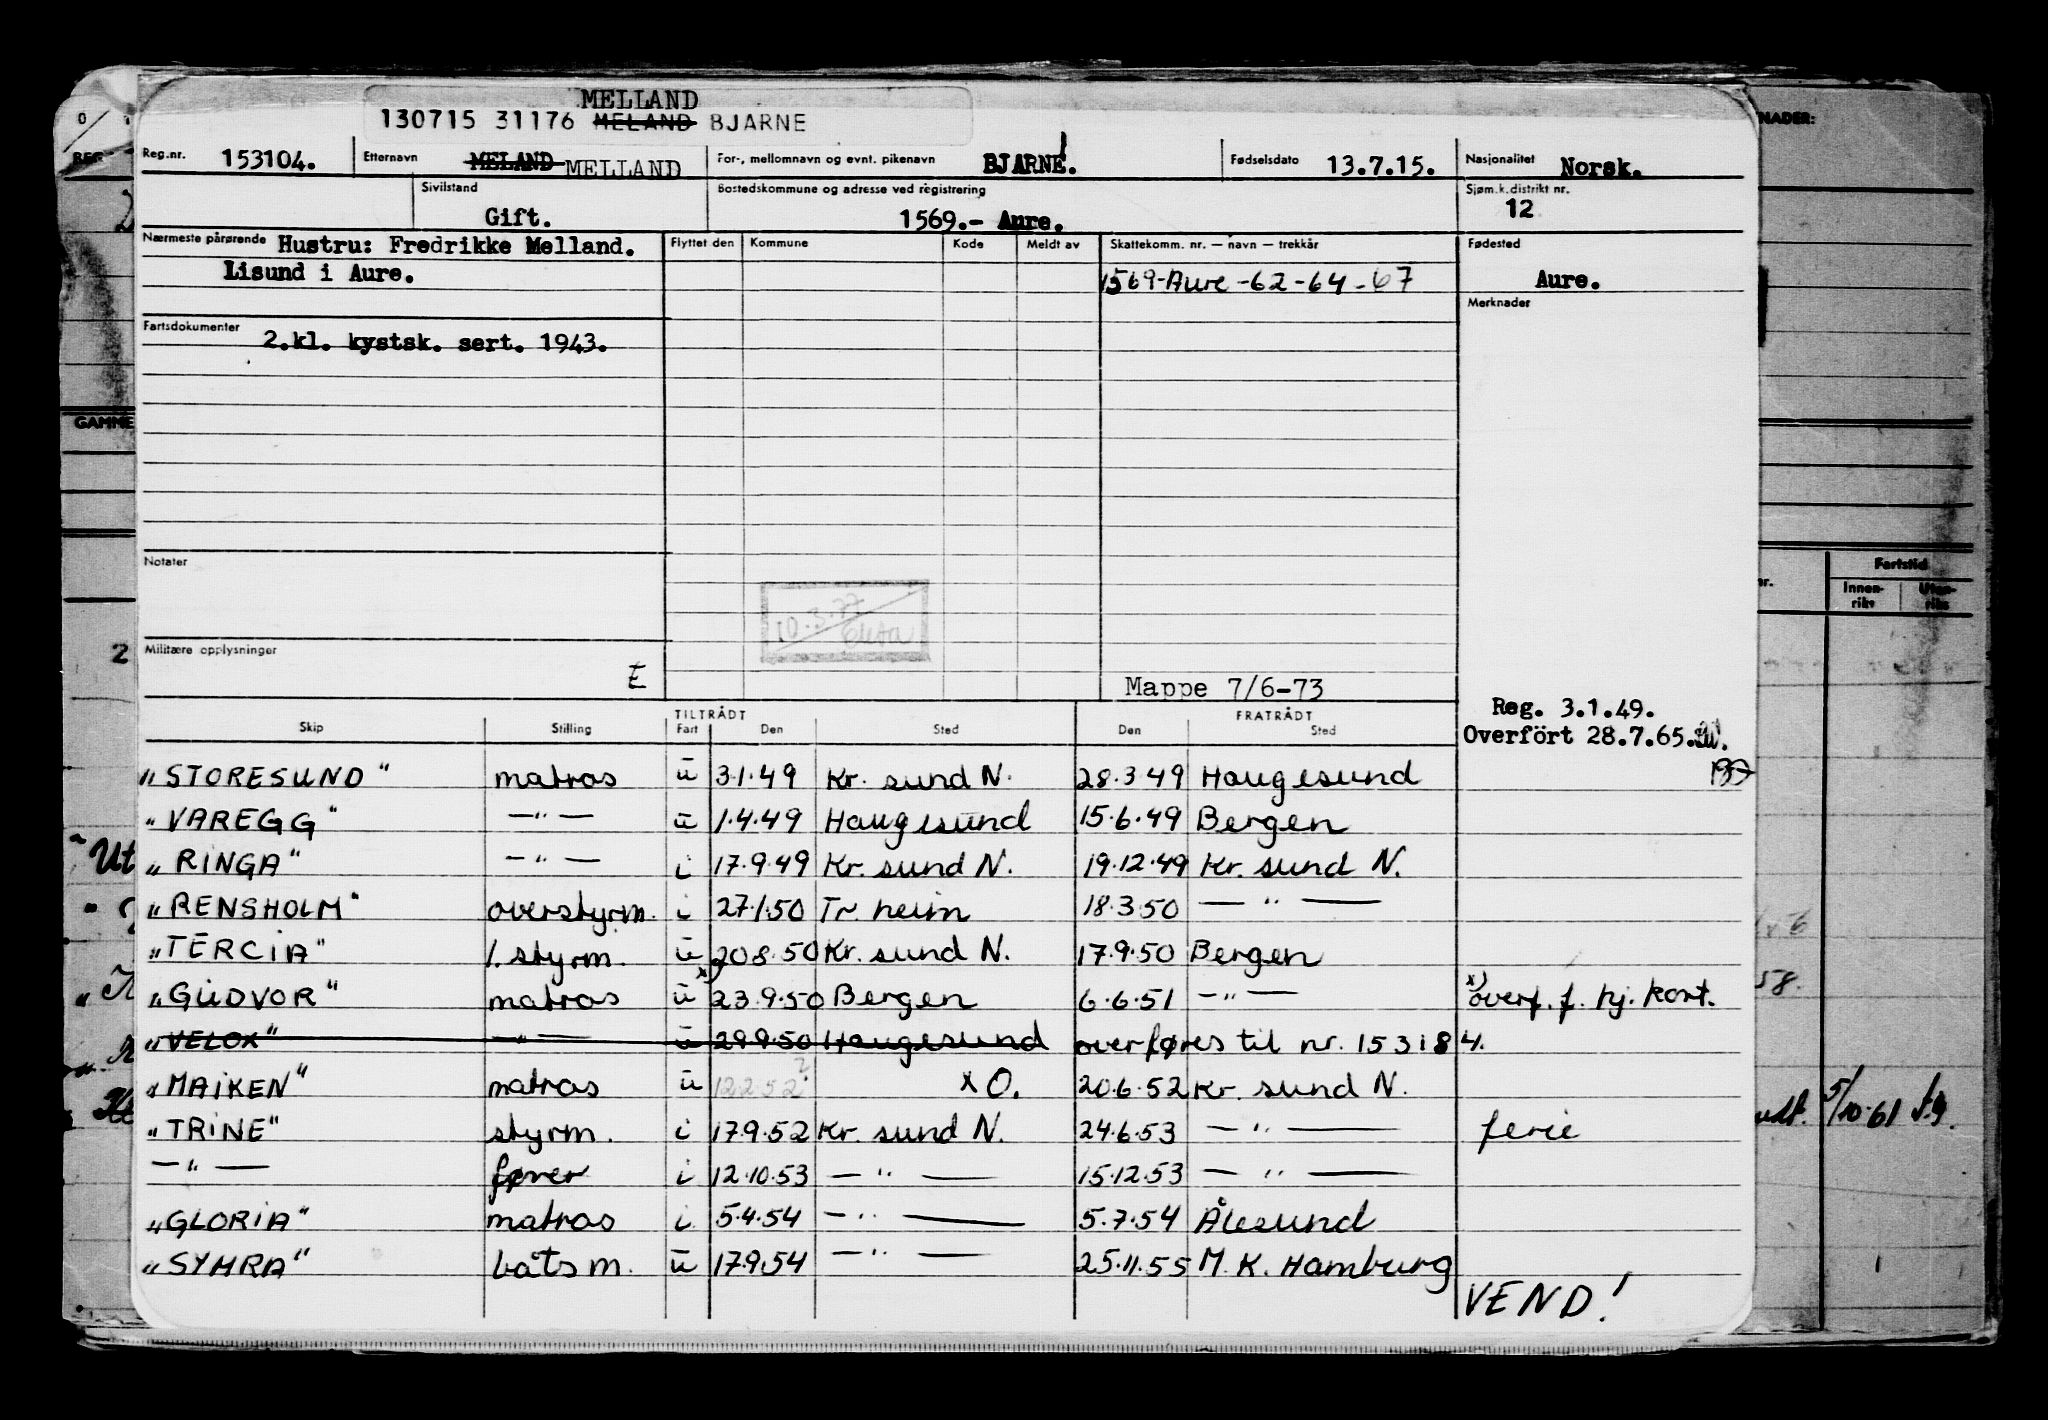 MELLAND
130715 31176 MELAND BJARNE
Reg.nr. 153104. Etternavn MELAND MELLAND For-, mellomnavn og evnt. pikenavn BJARNE. Fødselsdato 13.7.15. Nasjonalitet Norsk.
Sivilstand Gift. Bostedskommune og adresse ved registrering 1569.- Aure. Sjøm.k.distrikt nr. 12
Nærmeste pårørende Hustru: Fredrikke Melland. Flyttet den Kommune Kode Meldt av Skattekomm. nr. — navn — trekkår Fødested
Lisund i Aure. 1569-Aure-62-64-67 Aure.
Merknader
Fartsdokumenter 2.kl. kystsk. sert. 1943.
Notater
10.3.77
Militære opplysninger
E
Mappe 7/6-73
Reg. 3.1.49.
Overfört 28.7.65.
TILTRÅDT FRATRÅDT
Skip Stilling Fart Den Sted Den Sted
"STORESUND" matros u 3.1.49 Kr. sund N. 28.3.49 Haugesund
"VAREGG" —"— u 1.4.49 Haugesund 15.6.49 Bergen
"RINGA" —"— i 17.9.49 Kr. sund N. 19.12.49 Kr. sund N.
"RENSHOLM" overstyrm. i 27.1.50 Tr. heim 18.3.50 —"—
"TERCIA" 1. styrm. u 20.8.50 Kr. sund N. 17.9.50 Bergen
"GUDVOR" matros u x) 23.9.50 Bergen 6.6.51 —"— x) overf. f. hj. kort.
"VELOX" —"— u 29.9.50 Haugesund overføres til nr. 153184.
"MAIKEN" matros u 12.2.52 ? x O. 20.6.52 Kr. sund N.
"TRINE" styrm. i 17.9.52 Kr. sund N. 24.6.53 —"— ferie
—"— fører i 12.10.53 —"— 15.12.53 —"—
"GLORIA" matros i 5.4.54 —"— 5.7.54 Ålesund
"SYMRA" båtsm. u 17.9.54 —"— 25.11.55 M. K. Hamburg
VEND!
NADER:
GAMME
Fartstid
Innen-
riks
Uten-
riks
2
Ut
58.
5/10-61